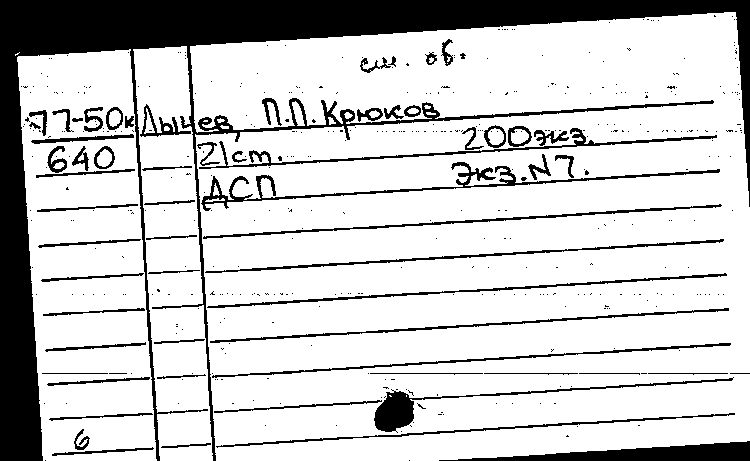 см. об.
77-50к Лычев, П.П. Крюков
640 21 ст. 200 экз.
ДСП Экз. N 7.
6